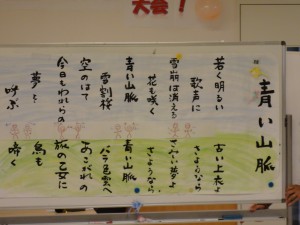 大会！
青い山脈
若く明るい
歌声に
雪崩は消える
花も咲く
青い山脈
雪割桜
空のはて
今日もわれらの
夢を
呼ぶ
古い上衣よ
さようなら
さみしい夢よ
さようなら
青い山脈
バラ色雲へ
あこがれの
旅の乙女に
鳥も
啼く